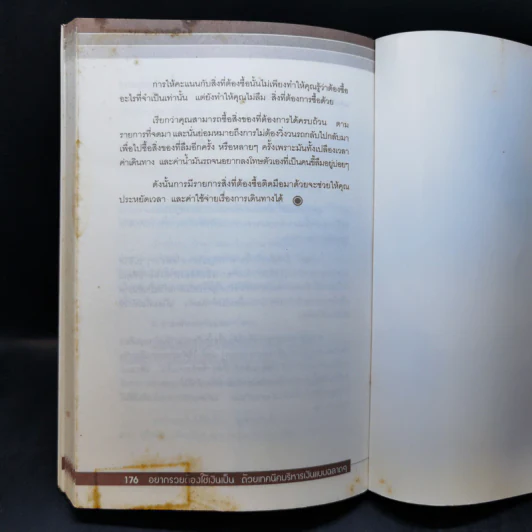 การให้คะแนนกับสิ่งที่ต้องซื้อนั้นไม่เพียงทำให้คุณรู้ว่าต้องซื้อ
อะไรที่จำเป็นเท่านั้น แต่ยังทำให้คุณไม่ลืม สิ่งที่ต้องการซื้อด้วย
เรียกว่าคุณสามารถซื้อสิ่งของที่ต้องการได้ครบถ้วน ตาม
รายการที่จดมา และนั่นย่อมหมายถึงการไม่ต้องวิ่งวนรถกลับไปกลับมา
เพื่อไปซื้อสิ่งของที่ลืมอีกครั้ง หรือหลายๆ ครั้งเพราะมันทั้งเปลืองเวลา
ค่าเดินทาง และค่าน้ำมันรถจนอยากลงโทษตัวเองที่เป็นคนขี้ลืมอยู่บ่อยๆ
ดังนั้นการมีรายการสิ่งที่ต้องซื้อติดมือมาด้วยจะช่วยให้คุณ
ประหยัดเวลา และค่าใช้จ่ายเรื่องการเดินทางได้
176 อยากรวยต้องใช้เงินเป็น ด้วยเทคนิคบริหารเงินแบบฉลาดๆ